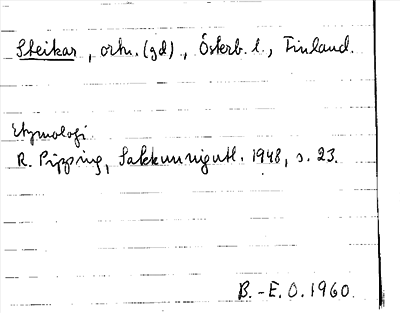 Steikar, ortn. (gd)., Österb. l., Finland.
Etymologi.
R. Pipping, Sakkunnigutl. 1948, s. 23.
B.-E. O. 1960.